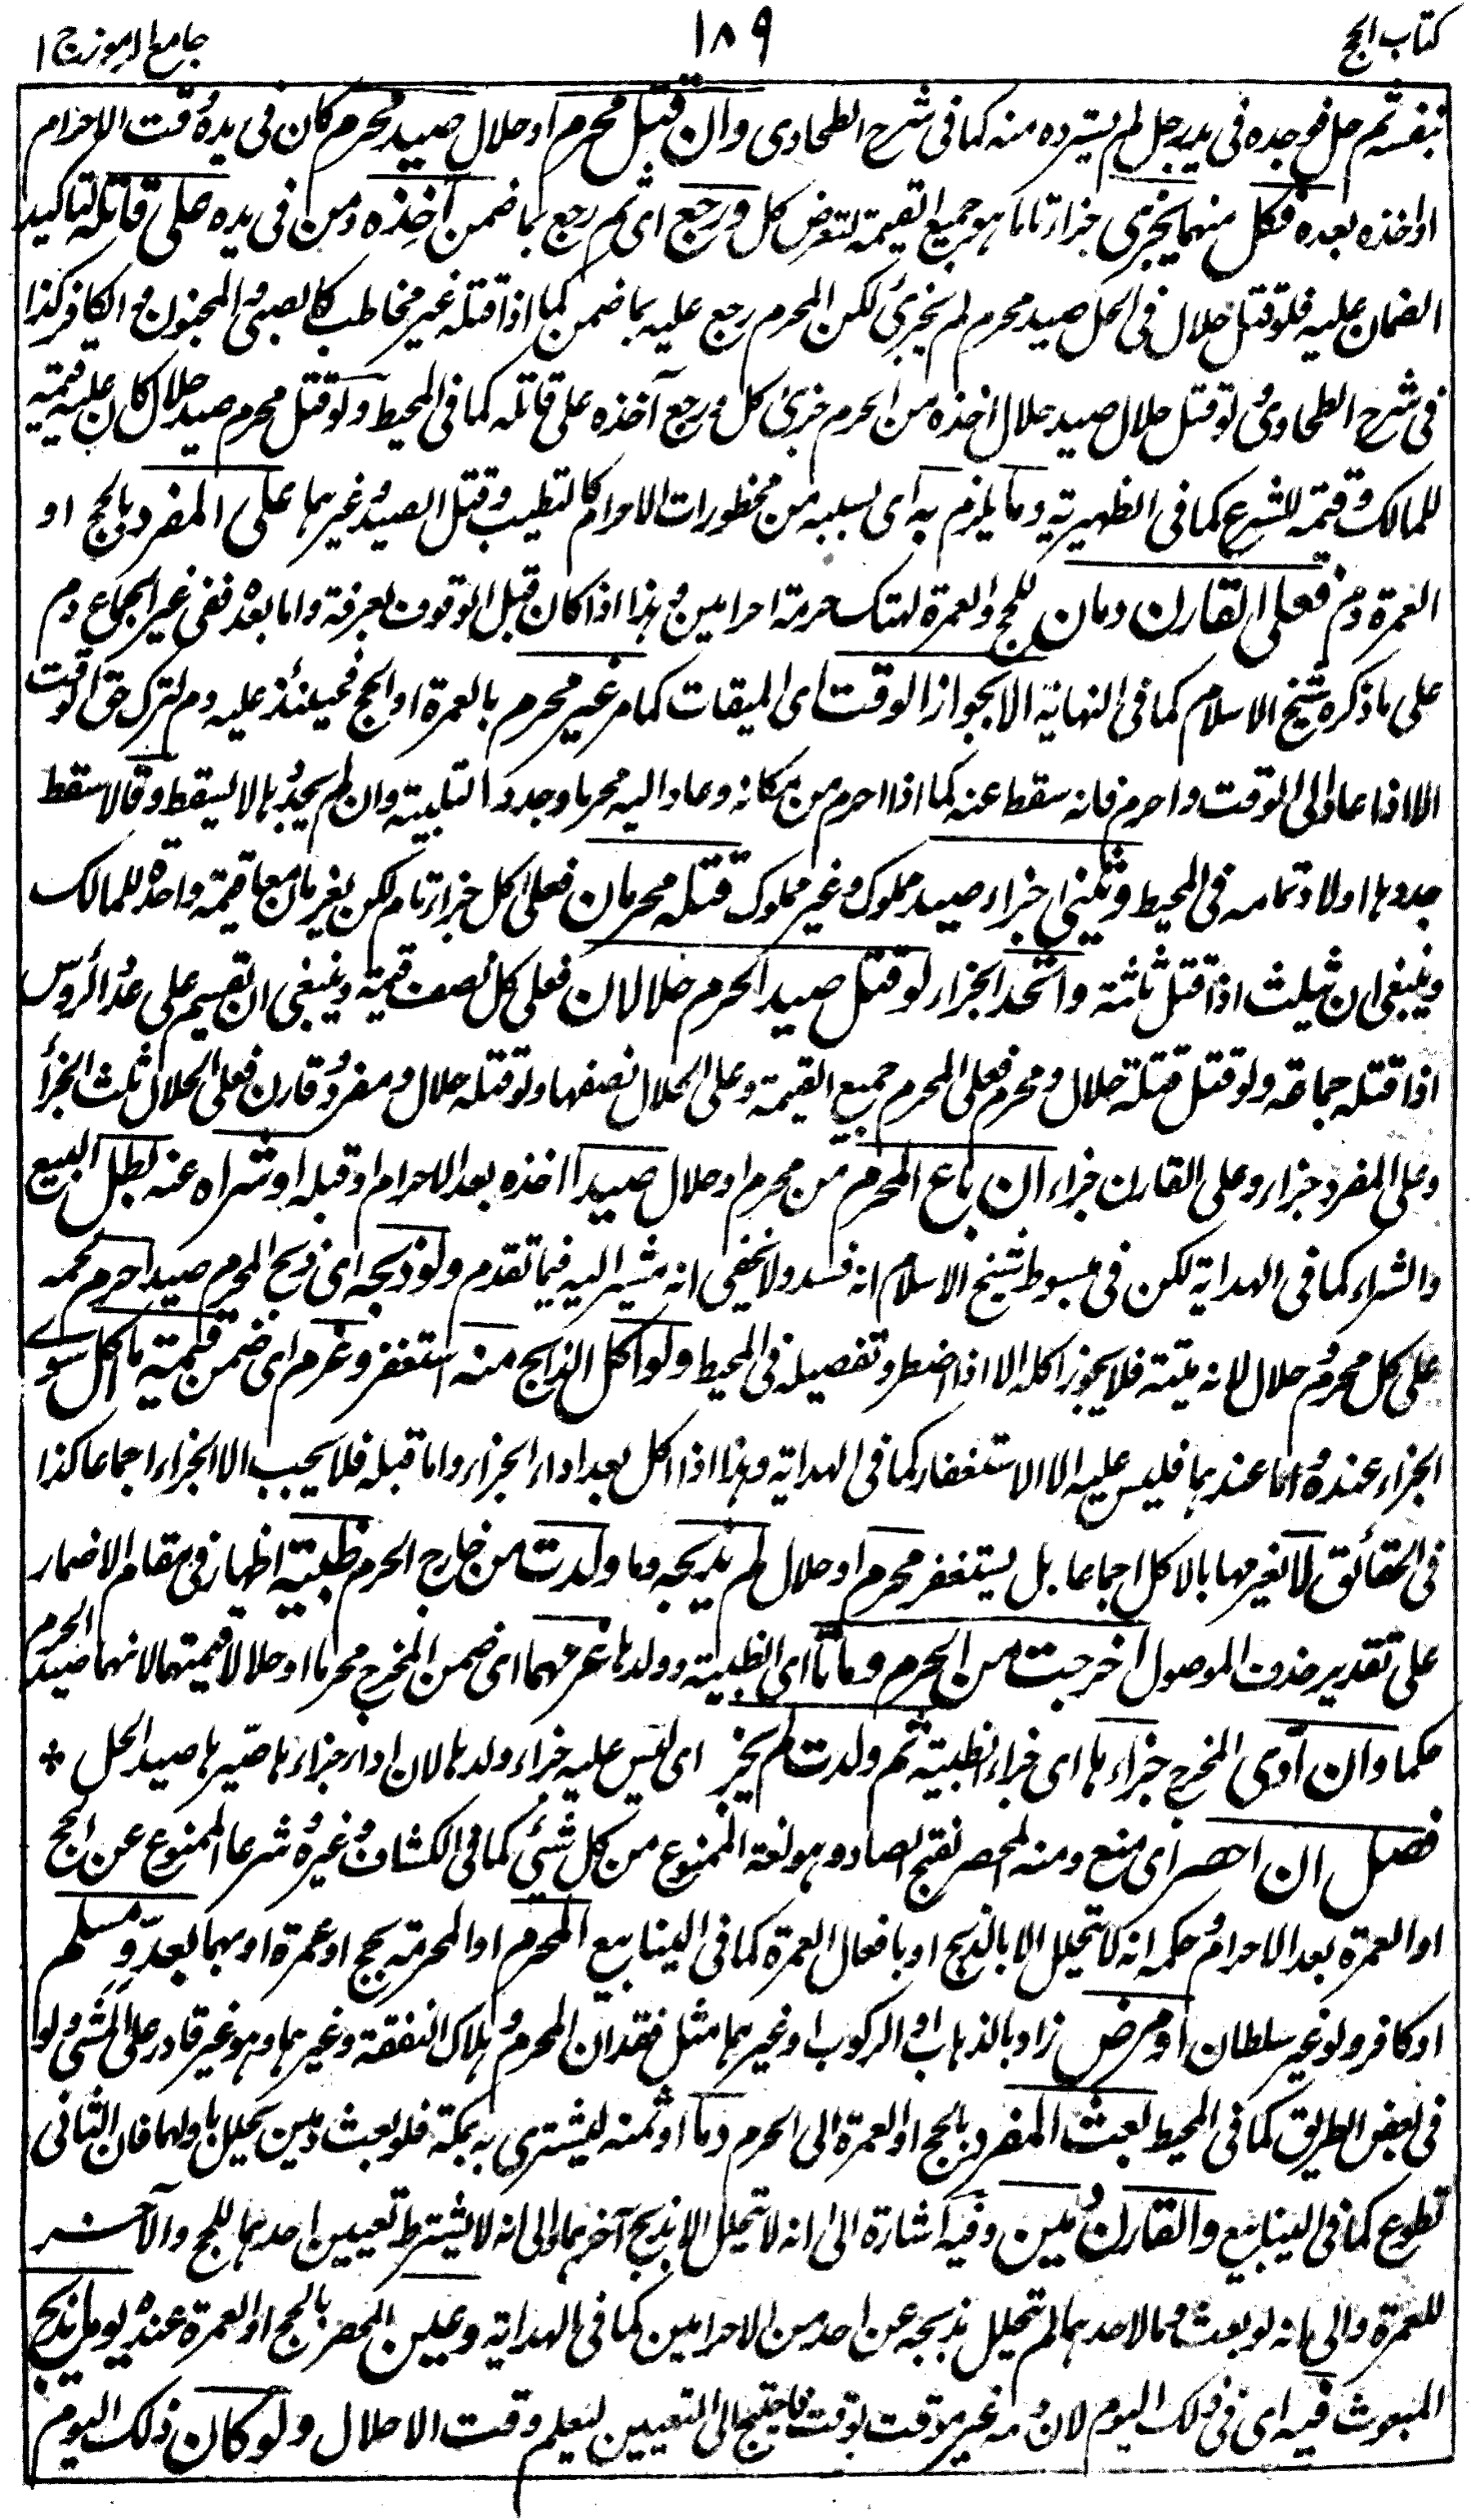 كتاب الحج
١٨٩
جامع الرموز ج ١
بنفسه ثم حل فوجده في يد رجل لم يسترده منه كما في شرح الطحاوى وان قتل محرم او حلال صيد محرم كان في يده وقت الاحرام
او اخذه بعده فكل منهما يجزى جزاء تاما هو جميع القيمة لتعرض كل ورجع اى ثم رجع بما ضمن آخذه ومن في يده على قاتله لتاكيد
الضمان عليه فلو قتل حلال في الحل صيد محرم لم يجزئ لكن المحرم رجع عليه بما ضمن كما اذا قتله غير مخاطب كالصبى والمجنون والكافر كذا
في شرح الطحاوى ولو قتل حلال صيد حلال اخذه من الحرم جزى كل ورجع آخذه على قاتله كما في المحيط ولو قتل محرم صيد حلال كان عليه قيمته
للمالك وقيمة للشرع كما في الظهيرية وما يلزم به اى بسببه من محظورات الاحرام كالتطيب وقتل الصيد وغيرهما على المفرد بالحج او
العمرة دم فعلى القارن دمان للحج والعمرة لهتك حرمة احرامين وهذا اذا كان قبل الوقوف بعرفة واما بعده ففى غير الجماع دم
على ما ذكره شيخ الاسلام كما في النهاية الا بجواز الوقت اى الميقات كما مر غير محرم بالعمرة او الحج فحينئذ عليه دم لترك حق الوقت
الا اذا عاد الى الوقت واحرم فانه سقط عنه كما اذا احرم من مكانه وعاد اليه محرما وجدد التلبية وان لم يجددها لا يسقط وقالا سقط
جددها اولا وتمامه في المحيط وثنى جزاء صيد مملوك وغير مملوك قتله محرمان فعلى كل جزاء تام لكن يغرمان معا قيمة واحدة للمالك
وينبغى ان يثلث اذا قتل ثلثة واتحد الجزاء لو قتل صيد الحرم حلالان فعلى كل نصف قيمة وينبغى ان تقسم على عدد الرؤس
اذا قتله جماعة ولو قتل قتلة حلال ومحرم فعلى المحرم جميع القيمة وعلى الحلال نصفها ولو قتله حلال ومفرد وقارن فعلى الحلال ثلث الجزأ
وعلى المفرد جزاء وعلى القارن جزاء ان باع المحرم من محرم او حلال صيدا اخذه بعد الاحرام او قبله او شراه عنه بطل البيع
والشراء كما في الهداية لكن في مبسوط شيخ الاسلام انه فسد ولا يخفى انه مشير اليه فيما تقدم ولو ذبحه اى ذبح المحرم صيدا حرم لحمه
على كل محرم وحلال لانه ميتة فلا يجوز اكله الا اذا اضطر وتفصيله في المحيط ولو اكل الذابح منه استغفر وغرم اى ضمن قيمة ما اكل سوى
الجزاء عنده واما عندهما فليس عليه الا الاستغفار كما في الهداية وهذا اذا اكل بعد اداء الجزاء واما قبله فلا يجب الا الجزاء اجماعا كذا
في الحقائق لا يغرمها بالاكل اجماعا بل يستغفر محرم او حلال لم يذبحه وما ولدت من خارج الحرم ظبية اظهار في مقام الاضمار
على تقدير حذف الموصول اخرجت من الحرم وماتا اى الظبية وولدها غرمهما اى ضمن المخرج محرما او حلالا قيمتهما لانهما صيد الحرم
حكما وان ادى المخرج جزاءها اى جزاء الظبية ثم ولدت لم يجز اى ليس عليه جزاء ولدها لان اداء جزاءها صيرها صيد الحل *
فصل ان احصر اى منع ومنه المحصر بفتح الصاد وهو لغة الممنوع من كل شئ كما في الكشاف وغيره وشرعا الممنوع عن الحج
او العمرة بعد الاحرام وحكمه انه لا يتحلل الا بالذبح او بافعال العمرة كما في الينابيع المحرم او المحرمة بحج او عمرة او بهما بعدو مسلم
او كافر ولو غير سلطان او مرض زاد بالذهاب او الركوب او غيرهما مثل فقدان المحرم وهلاك النفقة وغيرهما وهو غير قادر على المشى ولو
في بعض الطريق كما في المحيط بعث المفرد بالحج او العمرة الى الحرم دما او ثمنه ليشترى به بمكة فلو بعث دمين يحلل باولهما فان الثانى
تطوع كما في الينابيع والقارن دمين وفيه اشارة الى انه لا يتحلل الا بذبح آخرهما والى انه لا يشترط تعيين احدهما للحج والآخر
للعمرة والى انه لو بعث دما لاحدهما لم يتحلل بذبحه عن احد من الاحرامين كما في الهداية وعين المحصر بالحج او العمرة عنده يوما يذبح
المبعوث فيه اى في ذلك اليوم لان دمه غير موقت بوقت فاحتيج الى التعيين ليعلم وقت الاحلال ولو كان ذلك اليوم